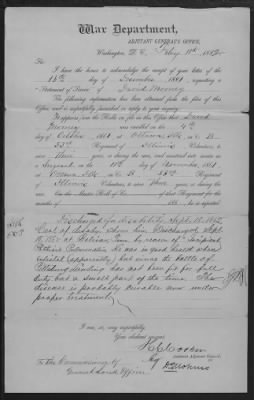 War Department,
ADJUTANT GENERAL'S OFFICE,
Washington, D. C., Feb'y 11th 1882.
Sir:
I have the honor to acknowledge the receipt of your letter of the
day of December 1881, requesting a
"Statement of Service" of David Mooney
The following information has been obtained from the files of this
Office, and is respectfully furnished in reply to your inquiry:
It appears from the Rolls on file in this Office, that David
Mooney was enrolled on the
day of October 1861 at Ottawa Ills in Co. B
53d Regiment of Illinois
Volunteers, to serve three years, during the war, and mustered into service as
a Sergeant on the day of November 1861,
at Ottawa Ills in Co. B 53d Regiment of
Illinois Volunteers, to serve three years, or during
the war. On the Muster Roll of Co. of that Regiment for
the months of 186 , he is reported
Discharged for disability Sept. 1862
Cert. of disability shows him Discharged Sept.
1862 at Bolivar, Tenn. by reason of "Incipient
He was in good health when
enlisted (apparently) but since the battle of
Pittsburg Landing has not been fit for full
duty but a small part of the time. The
disease is probably curable now under
proper treatment."
I am, sir, very respectfully,
Your obedient servant,
Assistant Adjutant General.
To the Commissioner of
General Land Office